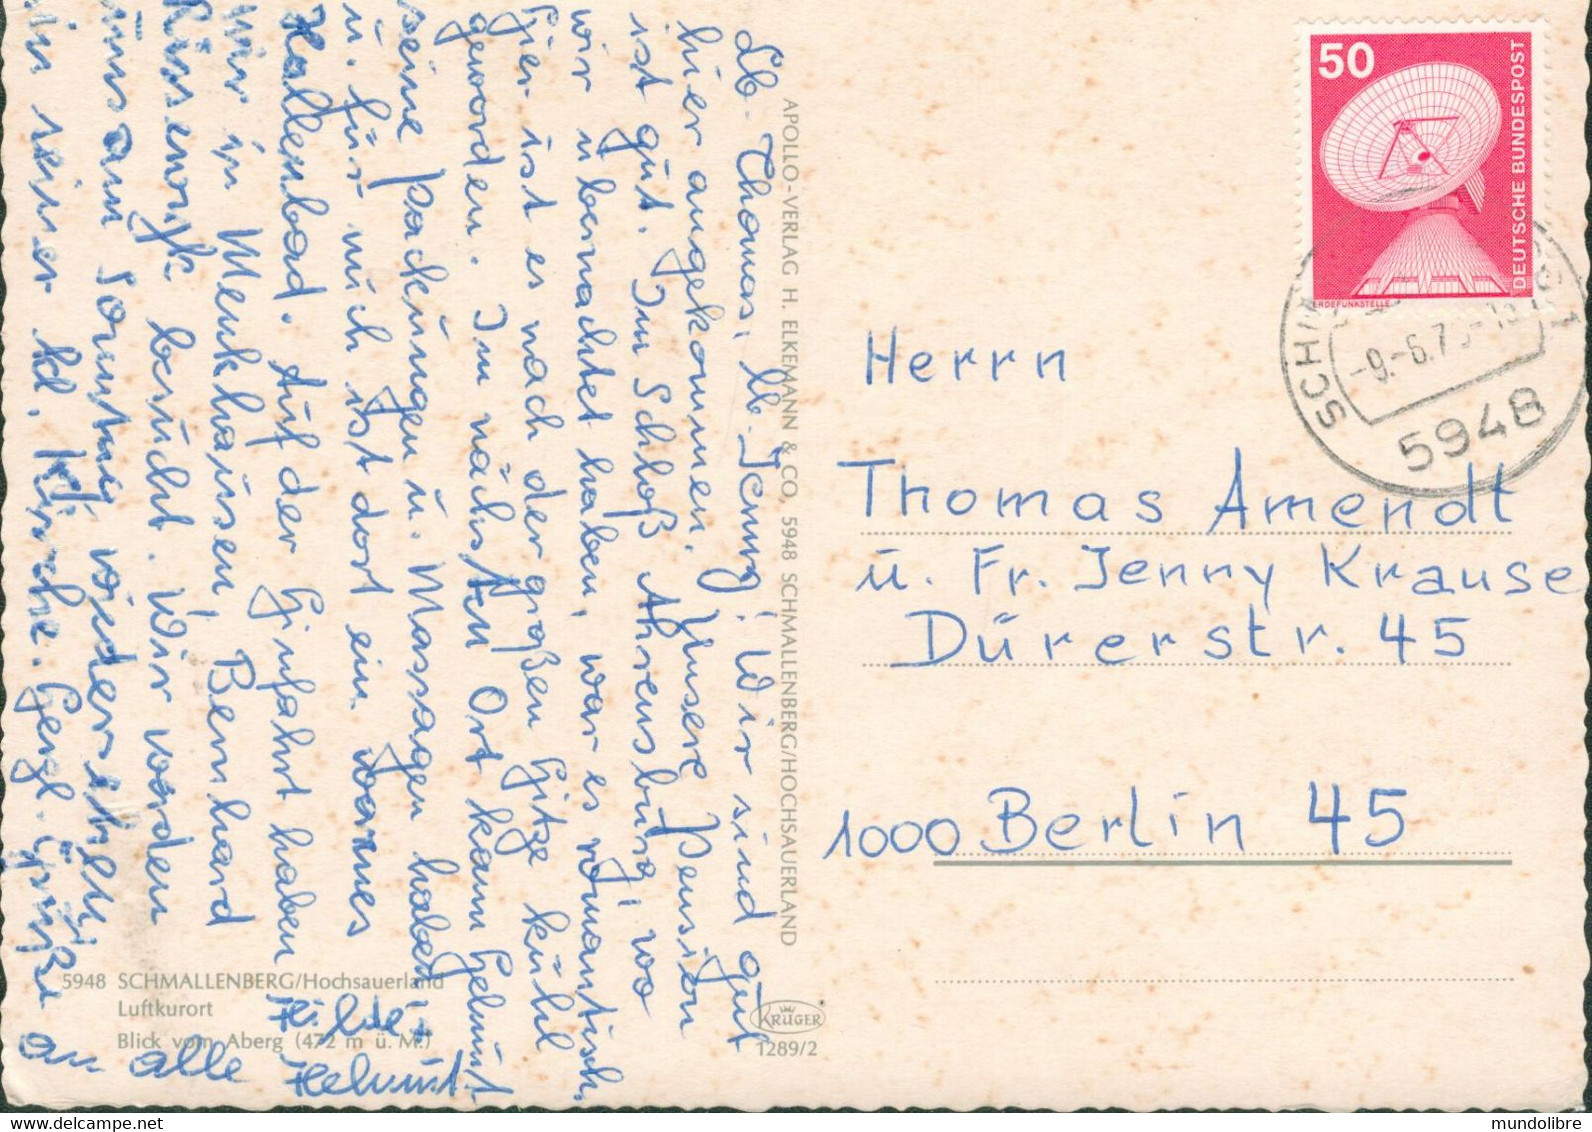 Lb. Thomas, lb. Jenny! Wir sind gut
hier angekommen. Unsere Pension
ist gut. Im Schloß Ahrensburg, wo
wir übernachtet haben, war es romantisch.
Hier ist es nach der großen Hitze kühl
geworden. Im nächsten Ort kann Helmut
seine Packungen u. Massagen haben
u. für mich ist dort ein warmes
Hallenbad. Auf der Hinfahrt haben
wir in Menkhausen, Bernhard
besucht. Wir worden
uns am Sonntag wieder
in seiner kl. Kirche. Herzl. Grüße
an alle Hilde +
Helmut.
APOLLO-VERLAG H. ELKEMANN & CO, 5948 SCHMALLENBERG/HOCHSAUERLAND
5948 SCHMALLENBERG/Hochsauerland
Luftkurort
Blick vom Aberg (472 m ü. M.)
KRÜGER
1289/2
50
DEUTSCHE BUNDESPOST
ERDEFUNKSTELLE
5948
Herrn
Thomas Amendt
u. Fr. Jenny Krause
Dürerstr. 45
1000 Berlin 45
mundolibre